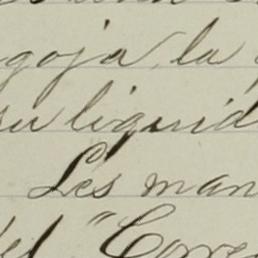 goja, la
su liquid
Les man
del "Corre